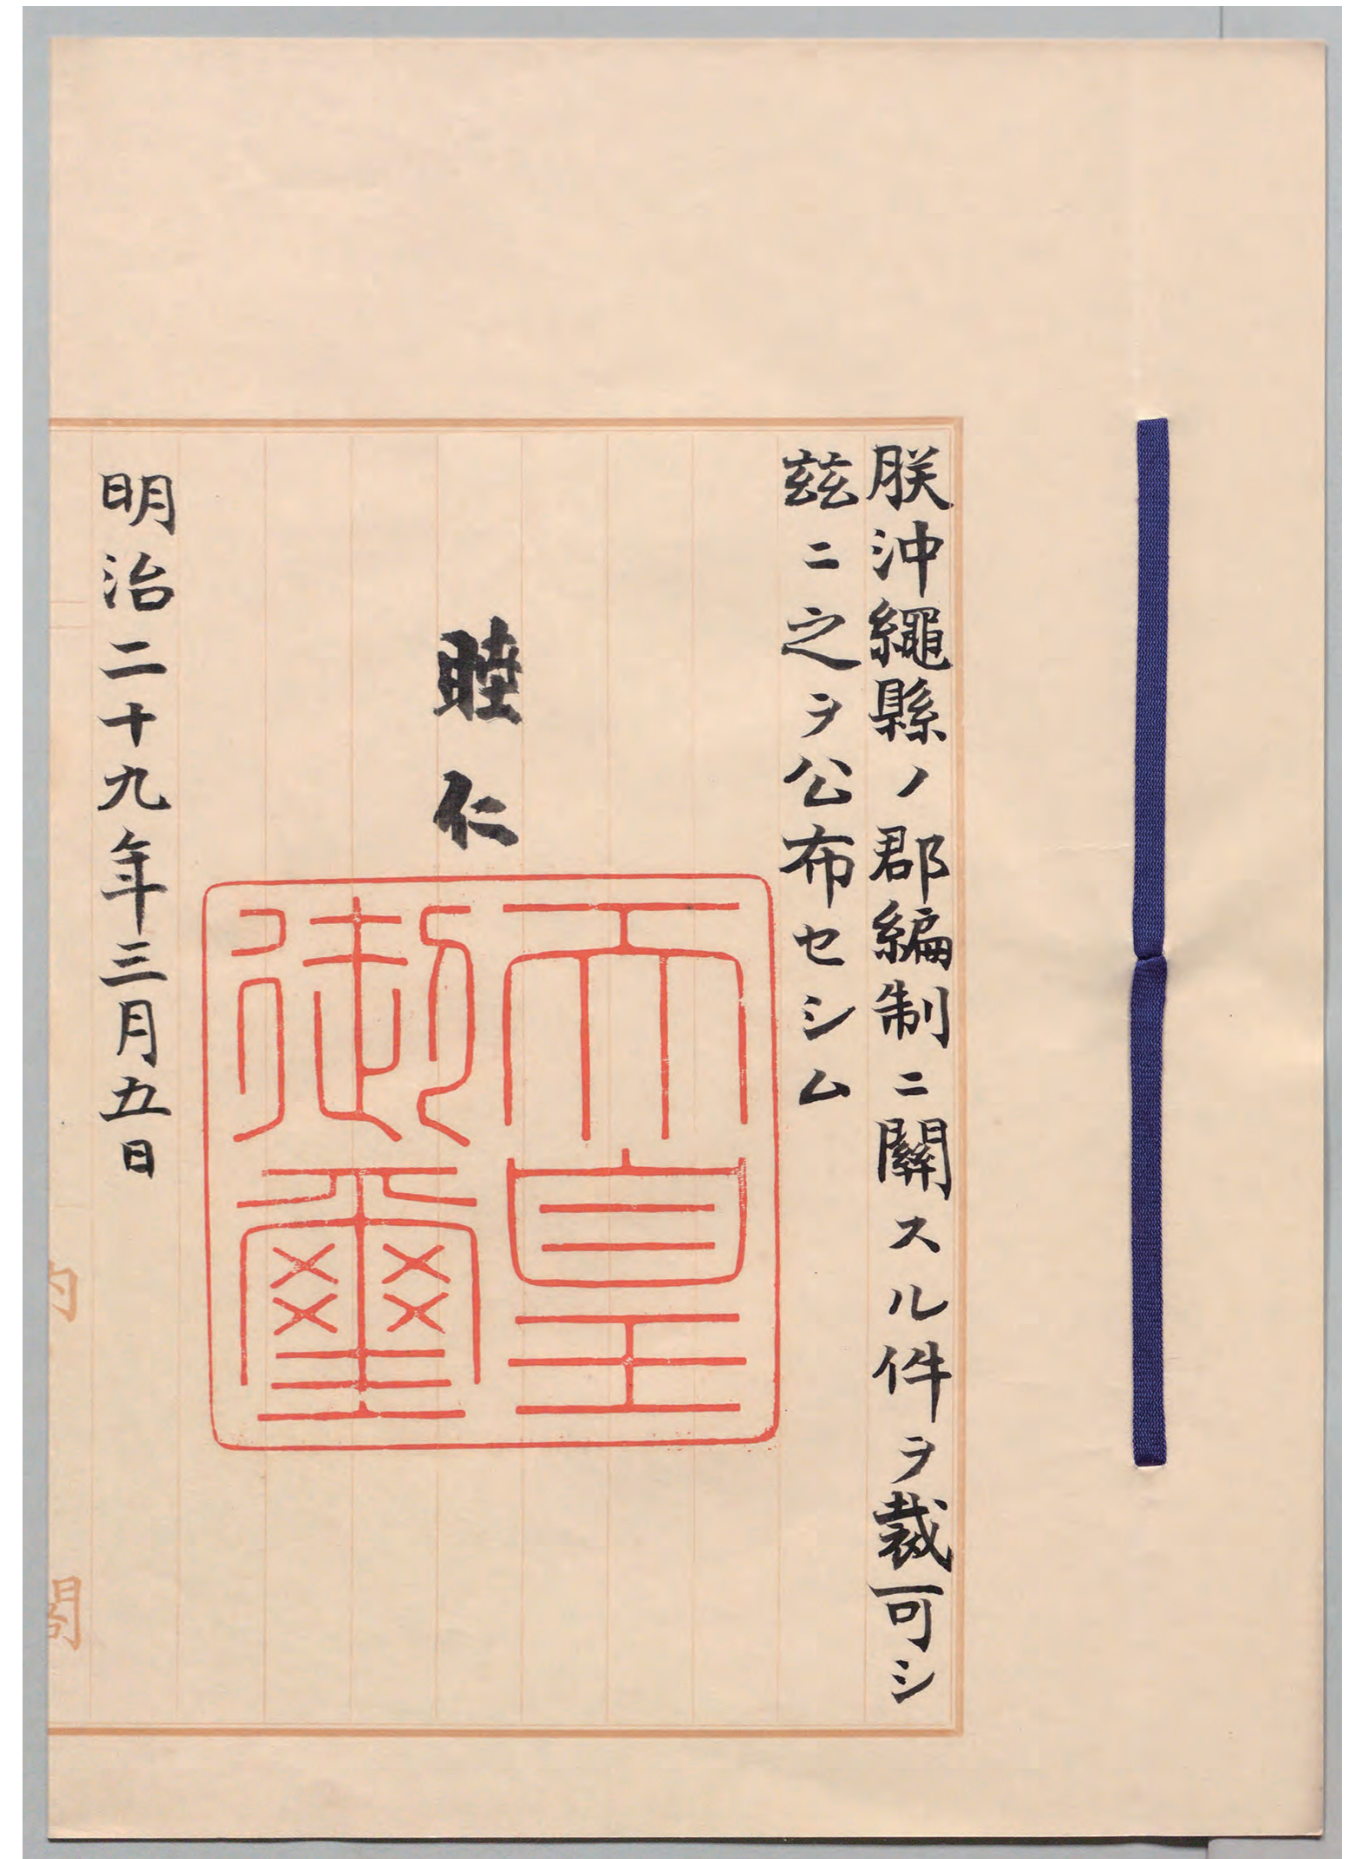 朕沖繩縣ノ郡編制ニ關スル件ヲ裁可シ
茲ニ之ヲ公布セシム
睦仁
天皇
御璽
明治二十九年三月五日
内閣